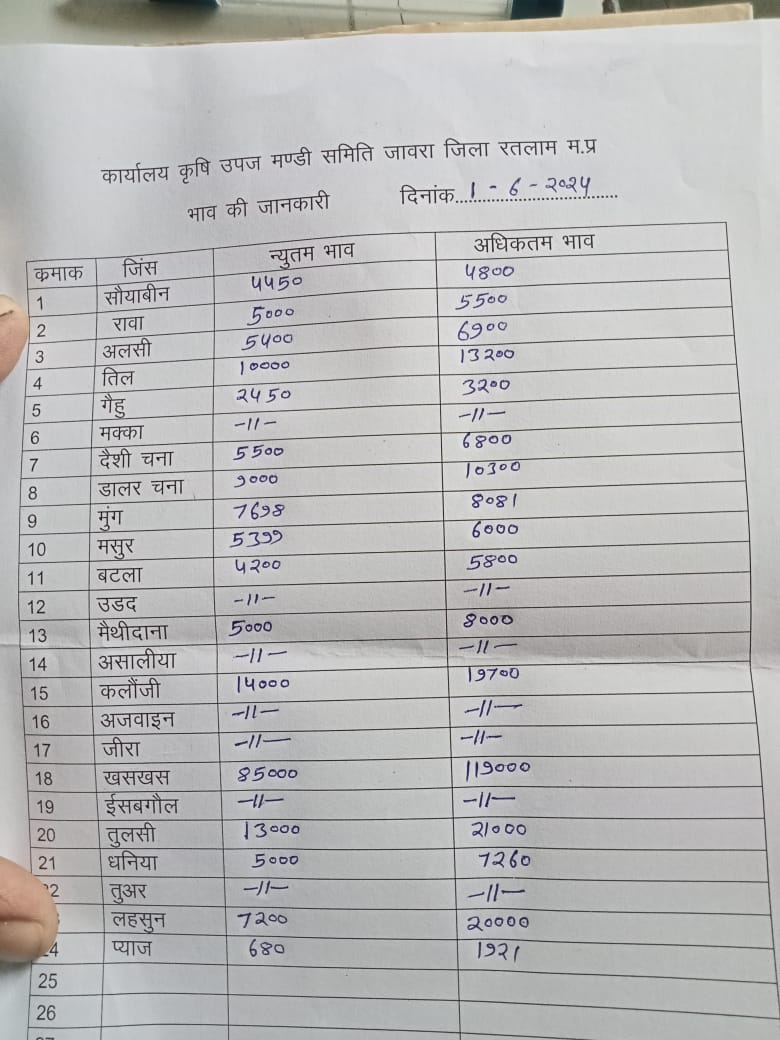 कार्यालय कृषि उपज मण्डी समिति जावरा जिला रतलाम म.प्र
भाव की जानकारी दिनांक 1 - 6 - २०२५
कमाक जिंस न्युतम भाव अधिकतम भाव
1 सौयाबीन 4450 4800
2 रावा 5000 5500
3 अलसी 5400 6900
4 तिल 10000 13200
5 गैहु 2450 3200
6 मक्का -11- -11-
7 दैशी चना 5500 6800
8 डालर चना 9000 10300
9 मुंग 7698 8081
10 मसुर 5399 6000
11 बटला 4200 5800
12 उडद -11- -11-
13 मैथीदाना 5000 8000
14 असालीया -11- -11-
15 कलौंजी 14000 19700
16 अजवाइन -11- -11-
17 जीरा -11- -11-
18 खसखस 85000 119000
19 ईसबगौल -11- -11-
20 तुलसी 13000 21000
21 धनिया 5000 7260
2 तुअर -11- -11-
लहसुन 7200 20000
4 प्याज 680 1921
25
26